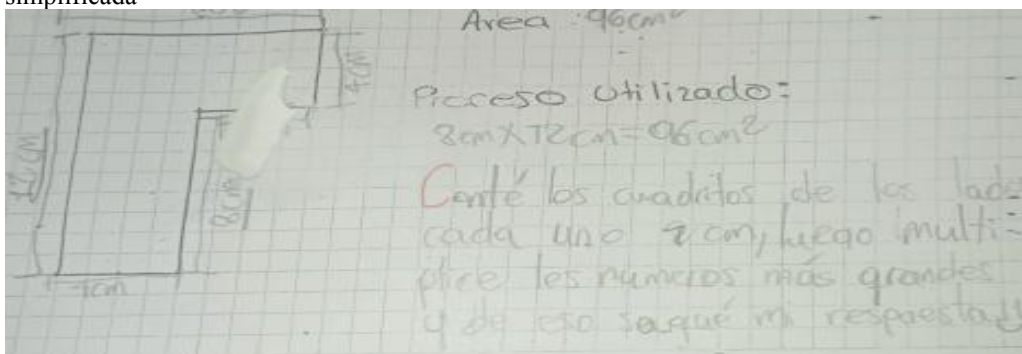 simplificada
Area: 96cm²
4cm
Proceso Utilizado:
8cm X 12cm = 96cm²
12cm
8cm
Conté los cuadritos de los lados
cada uno 2 cm, luego multi-
plire los números más grandes
y de eso saqué mi respuesta
4cm